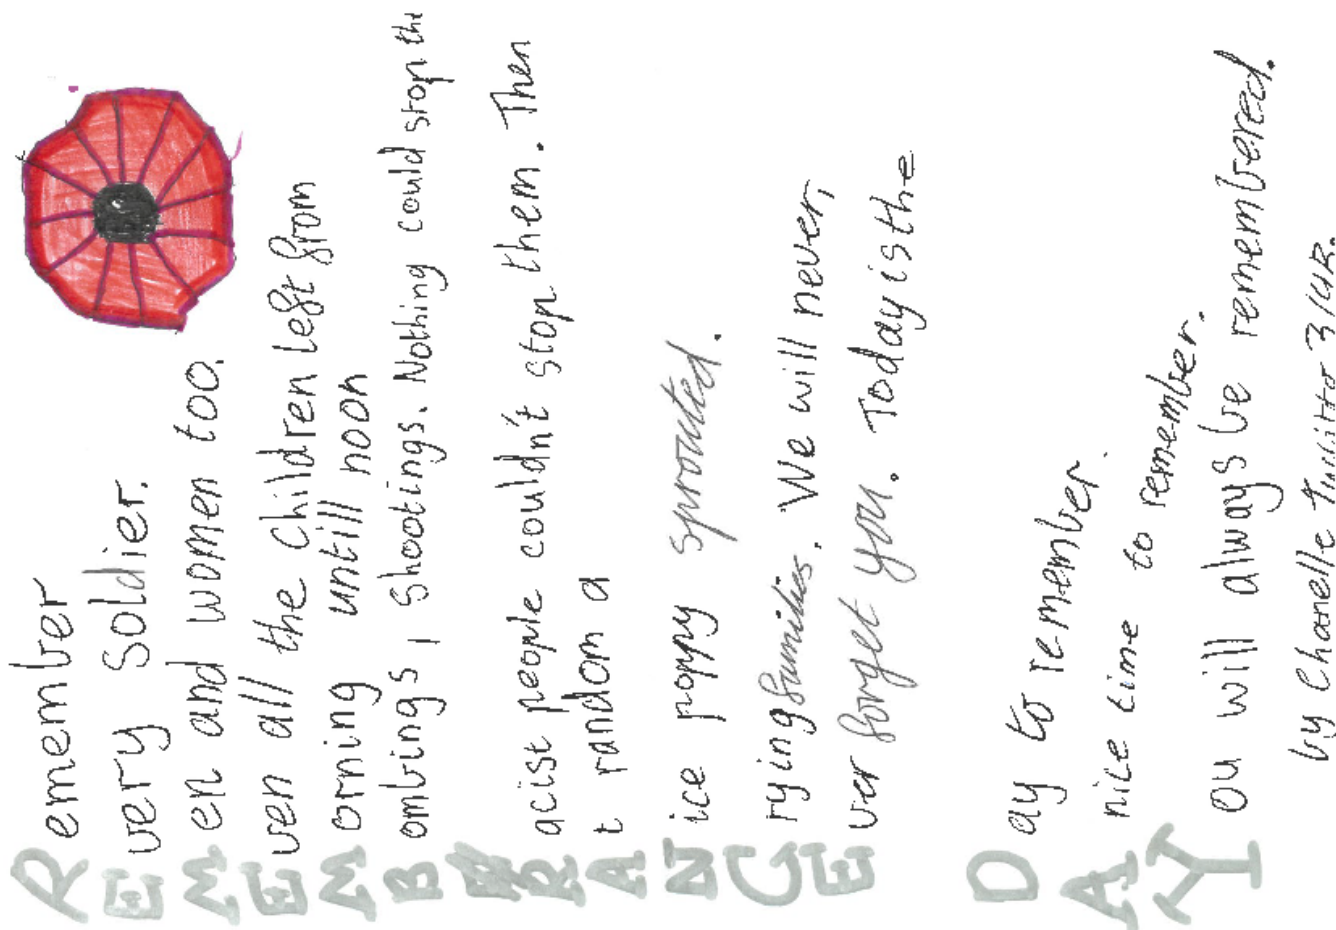 Remember
Every Soldier.
Men and women too.
Even all the children left from
Morning untill noon
Bombings, Shootings. Nothing could stop the
Racist people couldn't stop them. Then
At random a
Nice poppy sprouted.
Crying families. We will never,
Ever forget you. Today is the
Day to remember.
A nice time to remember.
You will always be remembered.
by Chanelle 3/4R.